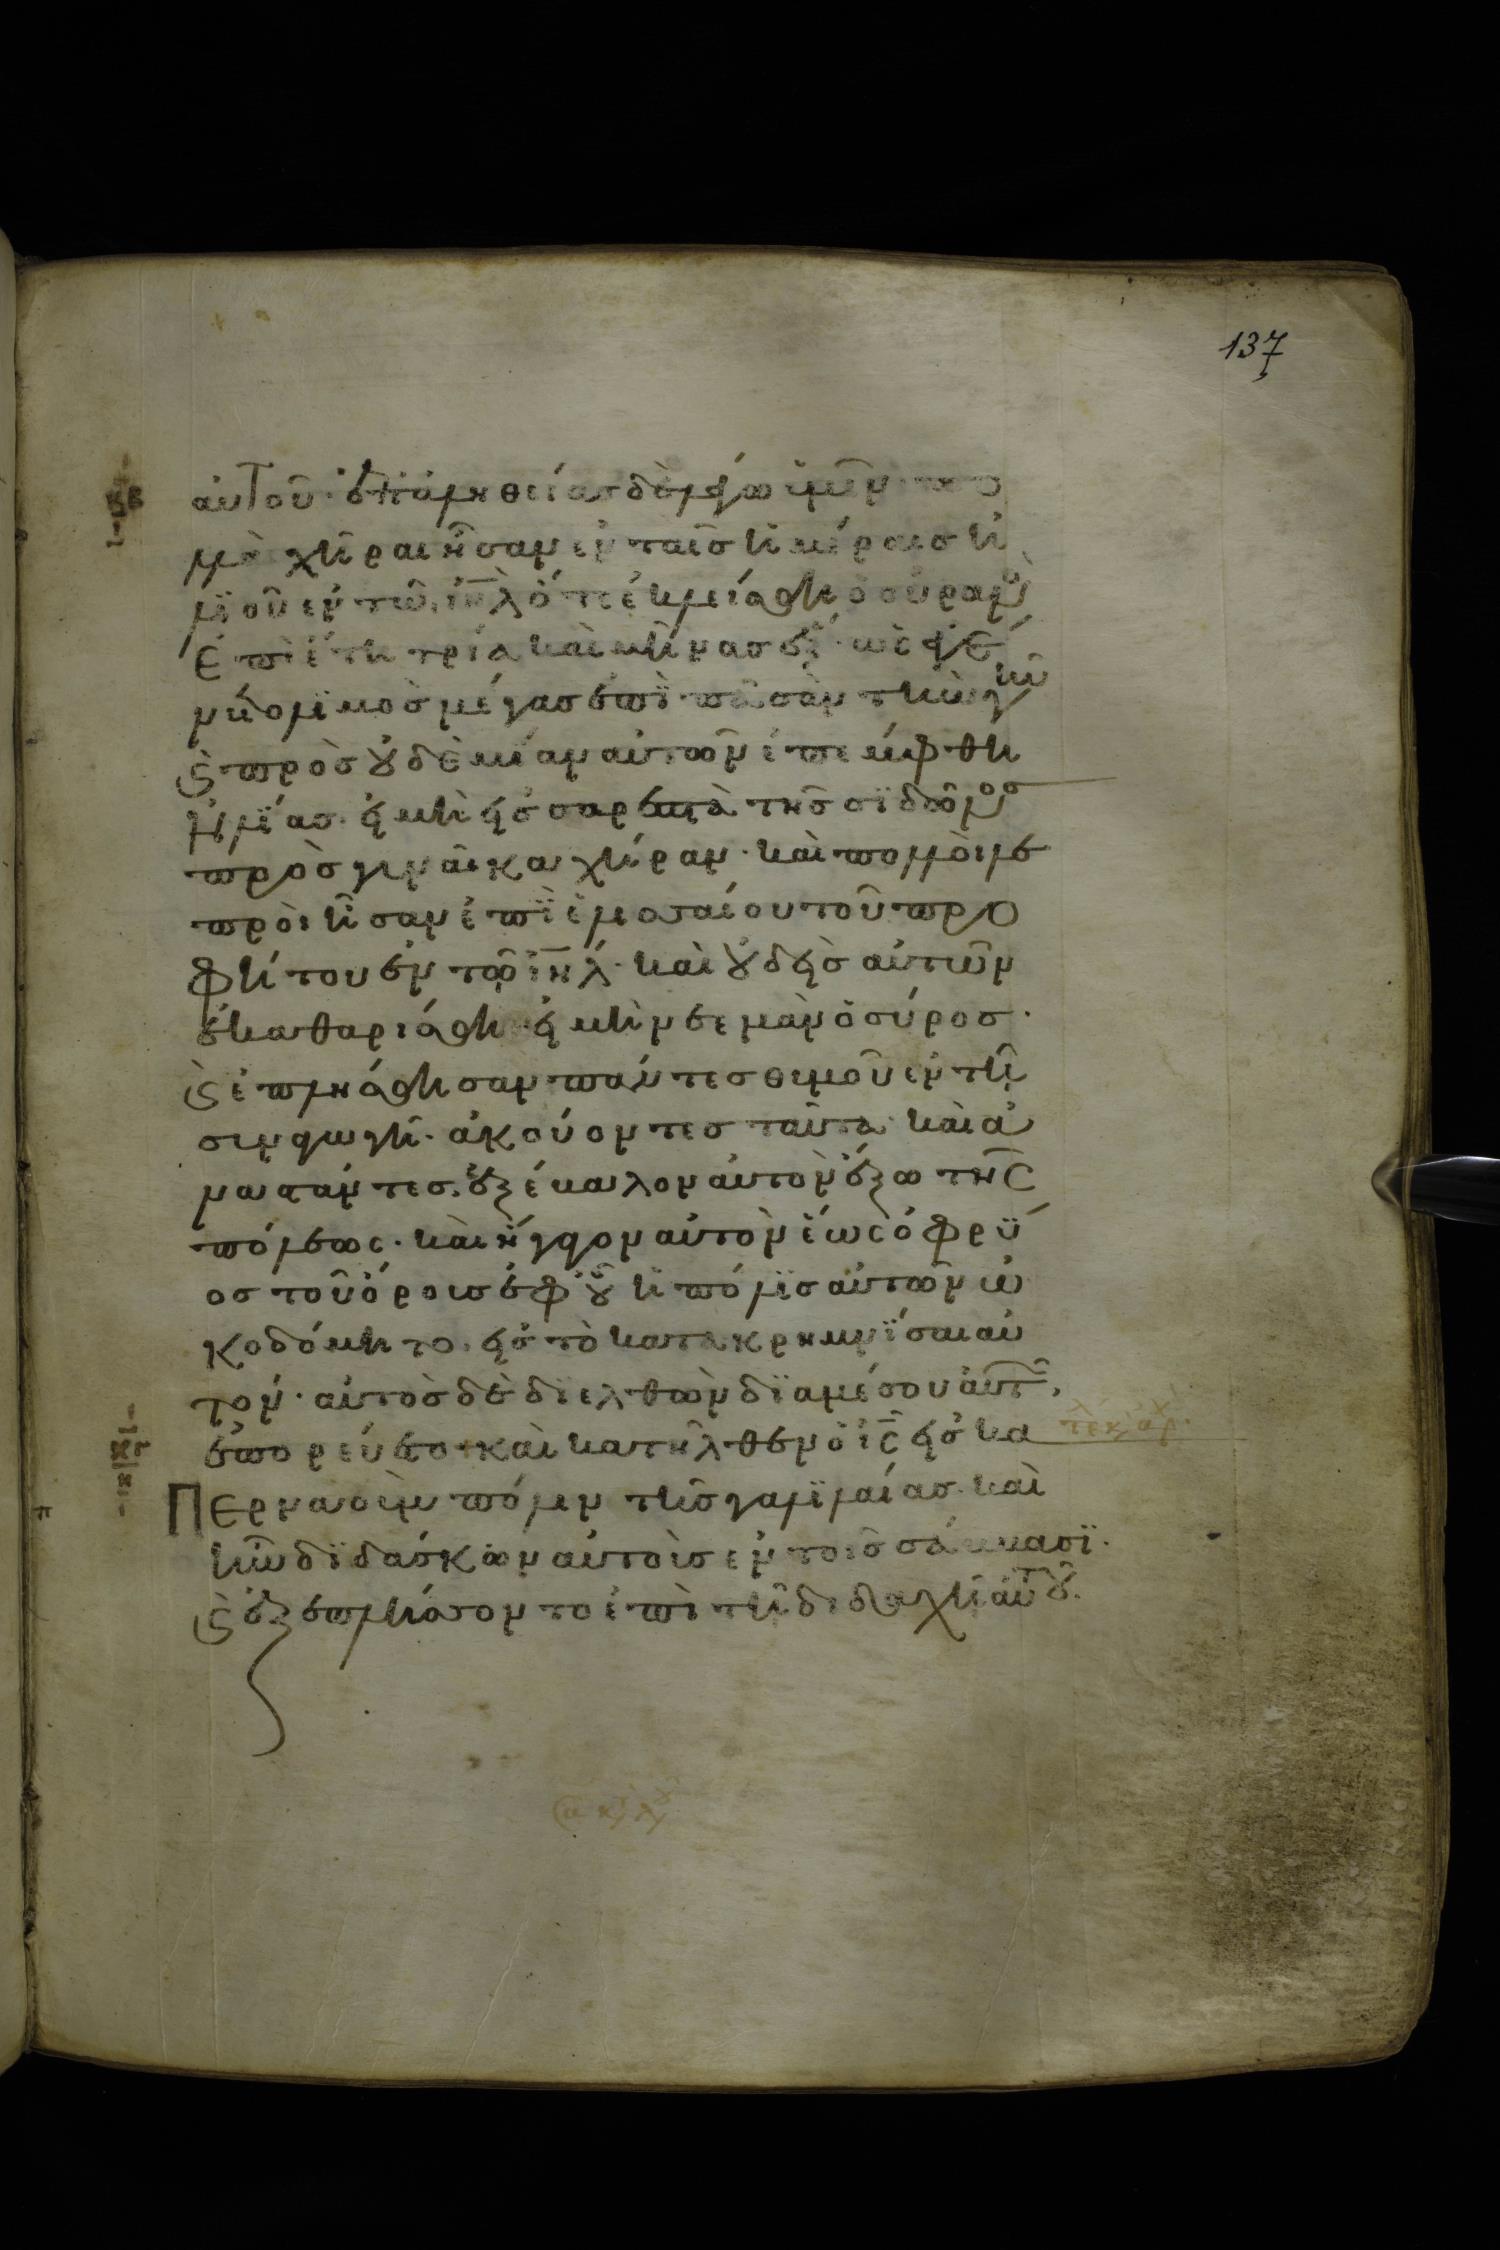 137
αὐτοῦ· ἐπ ἀληθείας δὲ λέγω ὑμῖν· πο
λλὲ χῆραι ἦσαν ἐν ταῖς ἡμέραις ἡ
λϊοῦ ἐν τῶ ιηλ ὅτε ἐκλείσθη ὁ οὐρανὸ
ἐπὶ ἔτη τρία καὶ μῆνας ἕξ· ὡς ἐγέ
νετο λϊμὸς μέγας ἐπὶ πᾶσαν τὴν γῆν
ϛ πρὸς οὐδεμίαν αὐτῶν ἐπέμφθη
ἡλΐας· εἰ μὴ εἰς σαρεπτὰ τῆς σϊδῶνος
πρὸς γυναῖκα χήραν· καὶ πολλοὶ λε
προὶ ἦσαν ἐπῒ ἐλισσαίου τοῦ προ
φήτου ἐν τῶ ιηλ· καὶ οὐδεὶς αὐτῶν
ἐκαθαρίσθη εἰ μὴ νεεμὰν ὁ σύρος·
ϛ ἐπλήσθησαν πάντες θυμοῦ ἐν τῆ
συναγωγῆ· ἀκούοντες ταῦτα· καὶ ἀ
ναστάντες· ἐξέβαλον αὐτὸν ἔξω τῆς
πόλεως· καὶ ἤγαγον αὐτὸν ἕως ὀφρύ
ος τοῦ ὄρους ἐφ οὗ ἡ πόλϊς αὐτῶν ὠ
κοδόμητο· εἰς τὸ κατακρημνΐσαι αὐ
τόν· αὐτὸς δὲ δϊελθὼν δϊαμέσου αὐτῶ
ἐπορεύετο· καὶ κατῆλθεν ὁ ις εἰς κα
περναοὺμ πόλιν τῆς γαλϊλαίας· καὶ
ἦν δϊδάσκων αὐτοὺς ἐν τοῖς σάββασϊ·
ϛ ἐξεπλήσσοντο ἐπὶ τῆ διδαχῆ αὐτοῦ·